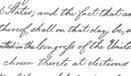 States, and the fact that
thereof, shall on that day be, a
in the Congress of the Unite
chosen thereto at elections